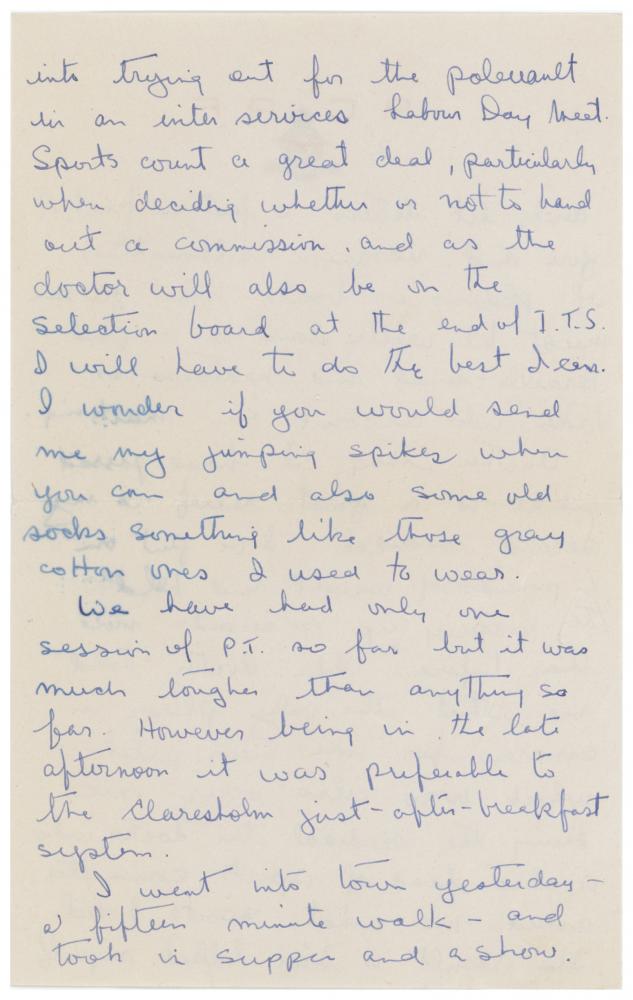 into trying out for the polevault
in an inter services Labour Day Meet.
Sports count a great deal, particularly
when deciding whether or not to hand
out a commission. and as the
doctor will also be on the
Selection board at the end of I.T.S.
I will have to do the best I can.
I wonder if you would send
me my jumping spikes when
you can and also some old
socks something like those gray
cotton ones I used to wear.
We have had only one
session of P.T. so far but it was
much tougher than anything so
far. However being in the late
afternoon it was preferable to
the Claresholm just-after-breakfast
system.
I went into town yesterday -
a fifteen minute walk - and
took in supper and a show.